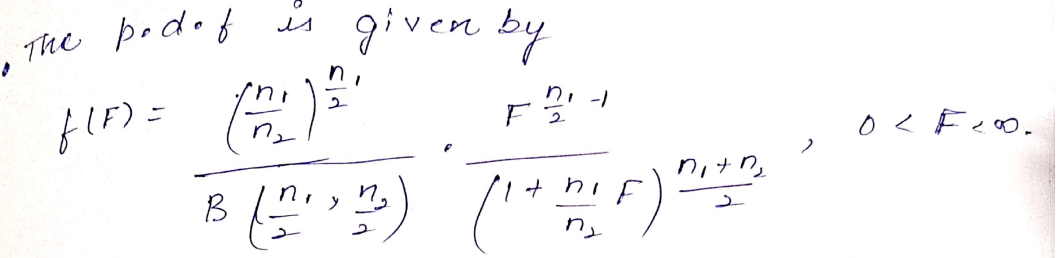 The p.d.f is given by
f(F) = \frac{\left(\frac{n_1}{n_2}\right)^{\frac{n_1}{2}}}{B\left(\frac{n_1}{2}, \frac{n_2}{2}\right)} \cdot \frac{F^{\frac{n_1}{2}-1}}{\left(1+\frac{n_1}{n_2}F\right)^{\frac{n_1+n_2}{2}}}, 0 < F < ∞.